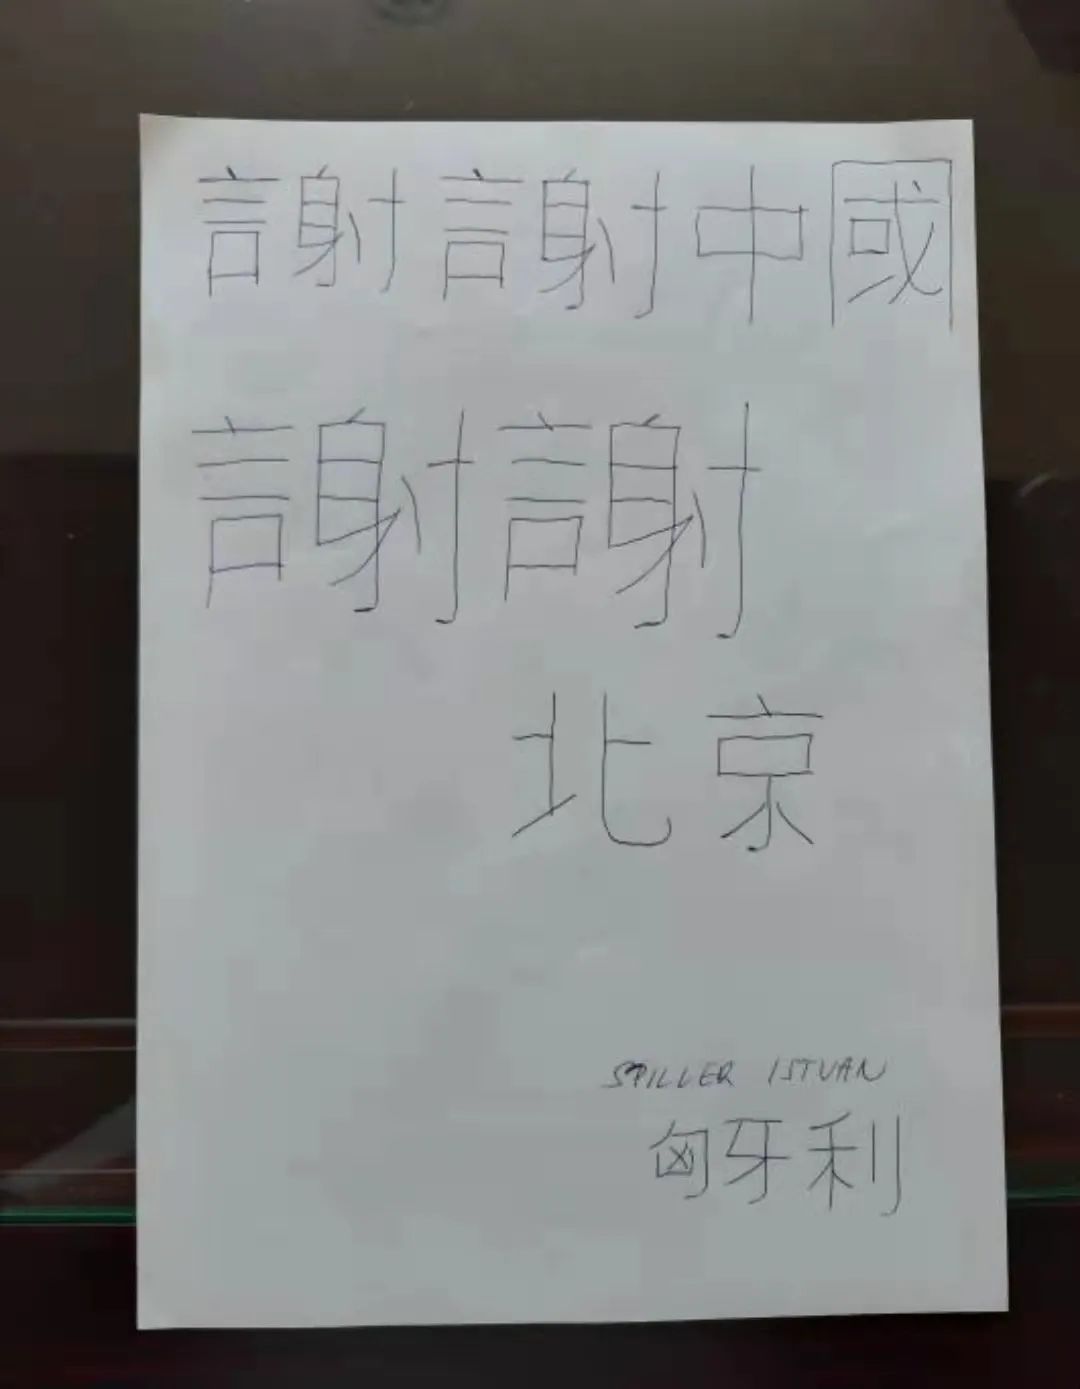 謝謝中國
謝謝
北京
SPILLER ISTVAN
匈牙利